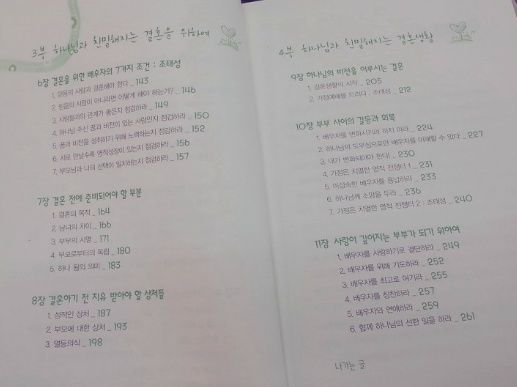 3부 하나님과 친밀해지는 결혼을 위하여
6장 결혼을 위한 배우자의 7가지 조건 : 조태성
1. 믿음의 사람과 결혼해야 한다 _ 143
2. 믿음의 사람이 아니라면 어떻게 해야 하는가? _ 146
3. 사람들과의 관계가 좋은지 점검하라 _ 149
4. 하나님 주신 꿈과 비전이 있는 사람인지 점검하라 _ 150
5. 꿈과 비전을 성취하기 위해 노력하는지 점검하라 _ 152
6. 서로 만날수록 영적성장이 있는지 점검하라 _ 156
7. 부모님과 나의 선택이 일치하는지 점검하라 _ 157
7장 결혼 전에 준비되어야 할 부분
1. 결혼의 목적 _ 164
2. 남녀의 차이 _ 166
3. 부부의 사명 _ 171
4. 부모로부터의 독립 _ 180
5. 하나 됨의 의미 _ 183
8장 결혼하기 전 치유 받아야 할 상처들
1. 성적인 상처 _ 187
2. 부모에 대한 상처 _ 193
3. 열등의식 _ 198
4부 하나님과 친밀해지는 결혼생활
9장 하나님의 비전을 이루시는 결혼
1. 결혼생활의 시작 _ 205
2. 가정예배를 드리라 : 조태성 _ 212
10장 부부 사이의 갈등과 회복
1. 배우자를 변화시키려 하지 마라 _ 224
2. 하나님의 도우심으로만 배우자를 이해할 수 있다 _ 227
3. 내가 변화되어야 한다! _ 230
4. 가정은 치열한 영적 전쟁터 1 _ 231
5. 미성숙한 배우자를 용납하라 _ 233
6. 하나님께 소망을 두라 _ 236
7. 가정은 치열한 영적 전쟁터 2 : 조태성 _ 240
11장 사랑이 깊어지는 부부가 되기 위하여
1. 배우자를 사랑하기로 결단하라 _ 249
2. 배우자를 위해 기도하라 _ 252
3. 배우자를 최고로 여기라 _ 255
4. 배우자를 칭찬하라 _ 257
5. 배우자와 연애하라 _ 259
6. 함께 하나님의 선한 일을 하라 _ 261
나가는 글